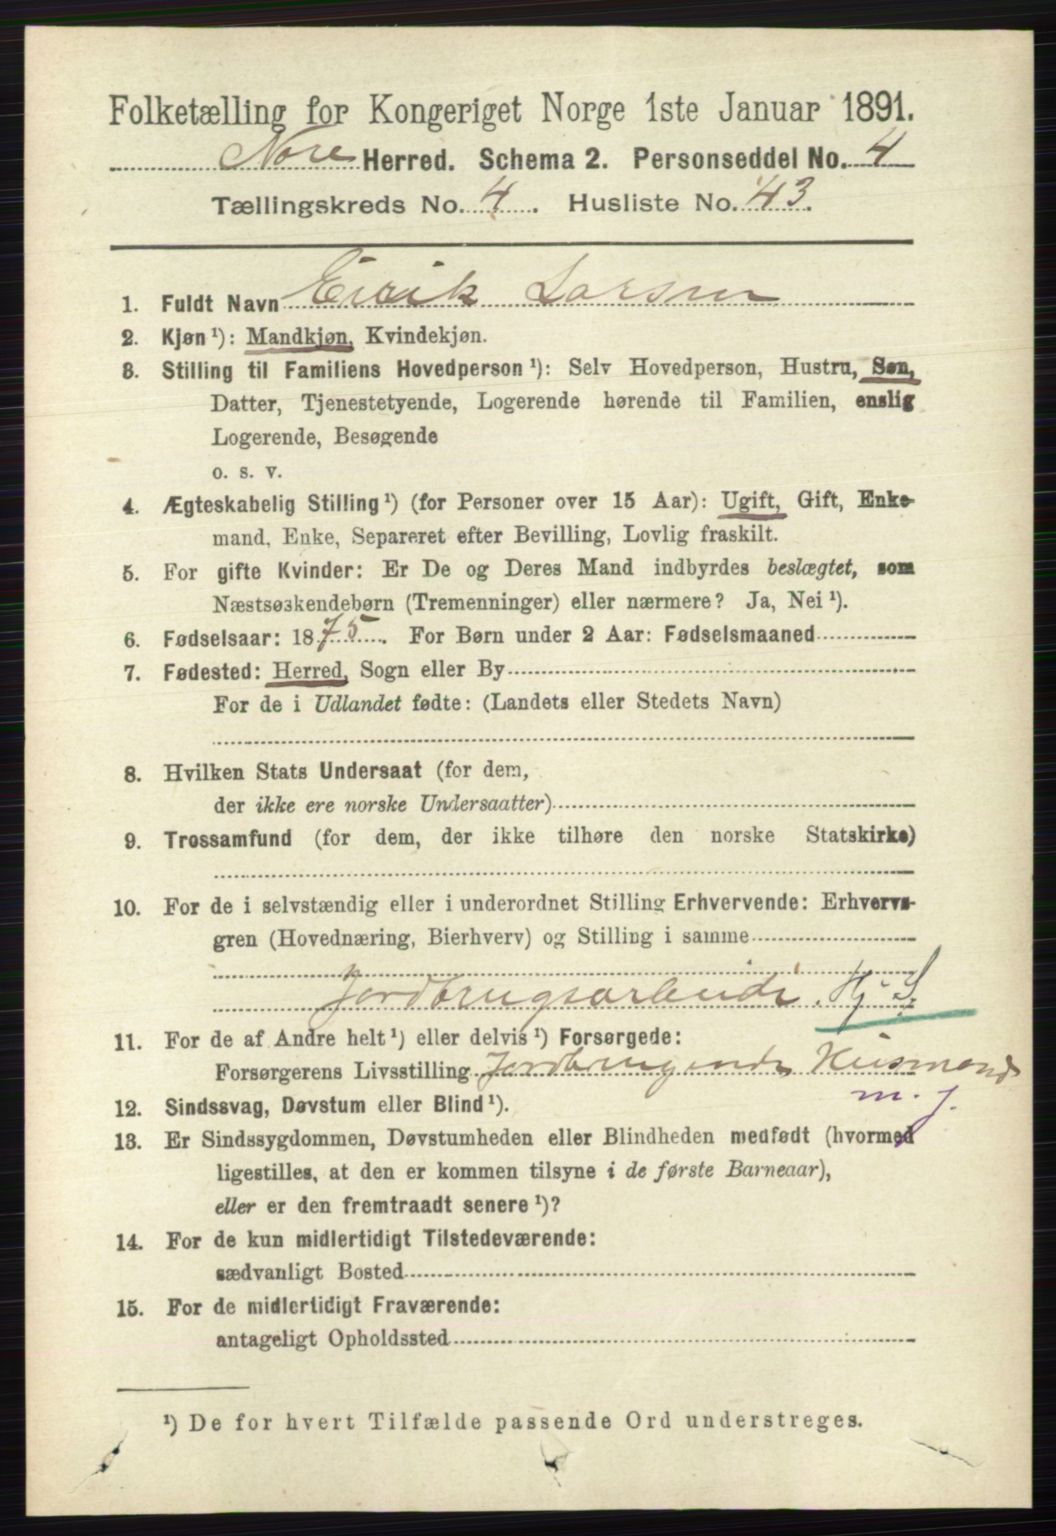 Folketælling for Kongeriget Norge 1ste Januar 1891.
Nore Herred. Schema 2. Personseddel No. 4
Tællingskreds No. 4. Husliste No. 43.
1. Fuldt Navn Eirik Larsen
2. Kjøn ¹): Mandkjøn, Kvindekjøn.
3. Stilling til Familiens Hovedperson ¹): Selv Hovedperson, Hustru, Søn,
Datter, Tjenestetyende, Logerende hørende til Familien, enslig
Logerende, Besøgende
o. s. v.
4. Ægteskabelig Stilling ¹) (for Personer over 15 Aar): Ugift, Gift, Enke-
mand, Enke, Separeret efter Bevilling, Lovlig fraskilt.
5. For gifte Kvinder: Er De og Deres Mand indbyrdes beslægtet, som
Næstsøskendebørn (Tremenninger) eller nærmere? Ja, Nei ¹).
6. Fødselsaar: 1875. For Børn under 2 Aar: Fødselsmaaned
7. Fødested: Herred, Sogn eller By
For de i Udlandet fødte: (Landets eller Stedets Navn)
8. Hvilken Stats Undersaat (for dem,
der ikke ere norske Undersaatter)
9. Trossamfund (for dem, der ikke tilhøre den norske Statskirke)
10. For de i selvstændig eller i underordnet Stilling Erhvervende: Erhvervs-
gren (Hovednæring, Bierhverv) og Stilling i samme
Jordbrugsarbeide. Hj. S.
11. For de af Andre helt ¹) eller delvis ¹) Forsørgede:
Forsørgerens Livsstilling Jordbrugende Husmand
m. j.
12. Sindssvag, Døvstum eller Blind ¹).
13. Er Sindssygdommen, Døvstumheden eller Blindheden medfødt (hvormed
ligestilles, at den er kommen tilsyne i de første Barneaar),
eller er den fremtraadt senere ¹)?
14. For de kun midlertidigt Tilstedeværende:
sædvanligt Bosted
15. For de midlertidigt Fraværende:
antageligt Opholdssted
¹) De for hvert Tilfælde passende Ord understreges.